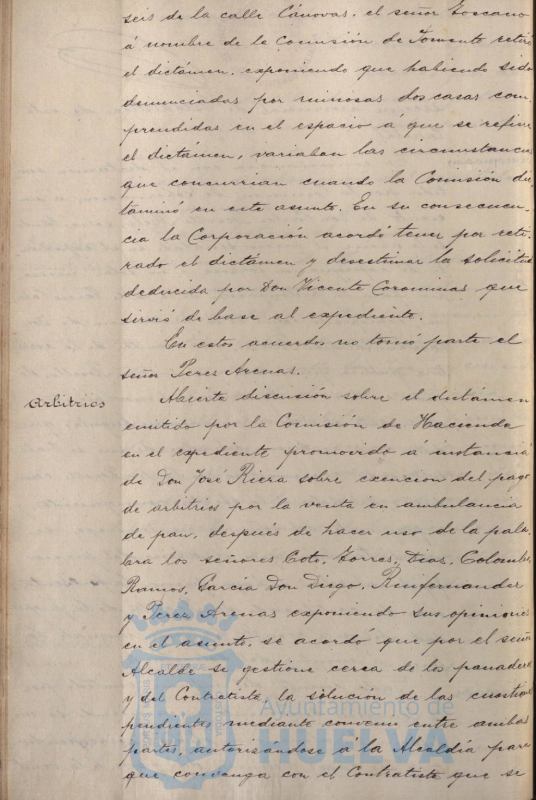 seis de la calle Cánovas, el señor Toscano
á nombre de la Comisión de Fomento retiró
el dictámen, exponiendo que habiendo sido
denunciadas por ruinosas dos casas com
prendidas en el espacio á que se refiere
el dictámen, variaban las circunstancias
que concurrian cuando la Comisión dic
taminó en este asunto. En su consecuen-
cia la Corporación acordó tener por reti-
rado el dictámen y desestimar la solicitud
deducida por Don Vicente Corominas que
sirvió de base al expediente.
En estos acuerdos no tomó parte el
señor Perez Arenas.
Arbitrios
Abierta discusión sobre el dictámen
emitido por la Comisión de Hacienda
en el expediente promovido á instancia
de Don José Riera sobre exencion del pago
de arbitrios por la venta en ambulancia
de pan, después de hacer uso de la pala
bra los señores Coto, Torres, Diaz, Colombo,
Ramos, García Don Diego, Ruifernandez
y Perez Arenas exponiendo sus opiniones
en el asunto, se acordó que por el señor
Alcalde se gestione cerca de los panaderos
y del Contratista, la solución de las cuestiones
pendientes mediante convenio entre ambas
partes, autorizándose á la Alcaldía para
que convenga con el Contratista que se
Ayuntamiento de
HUELVA